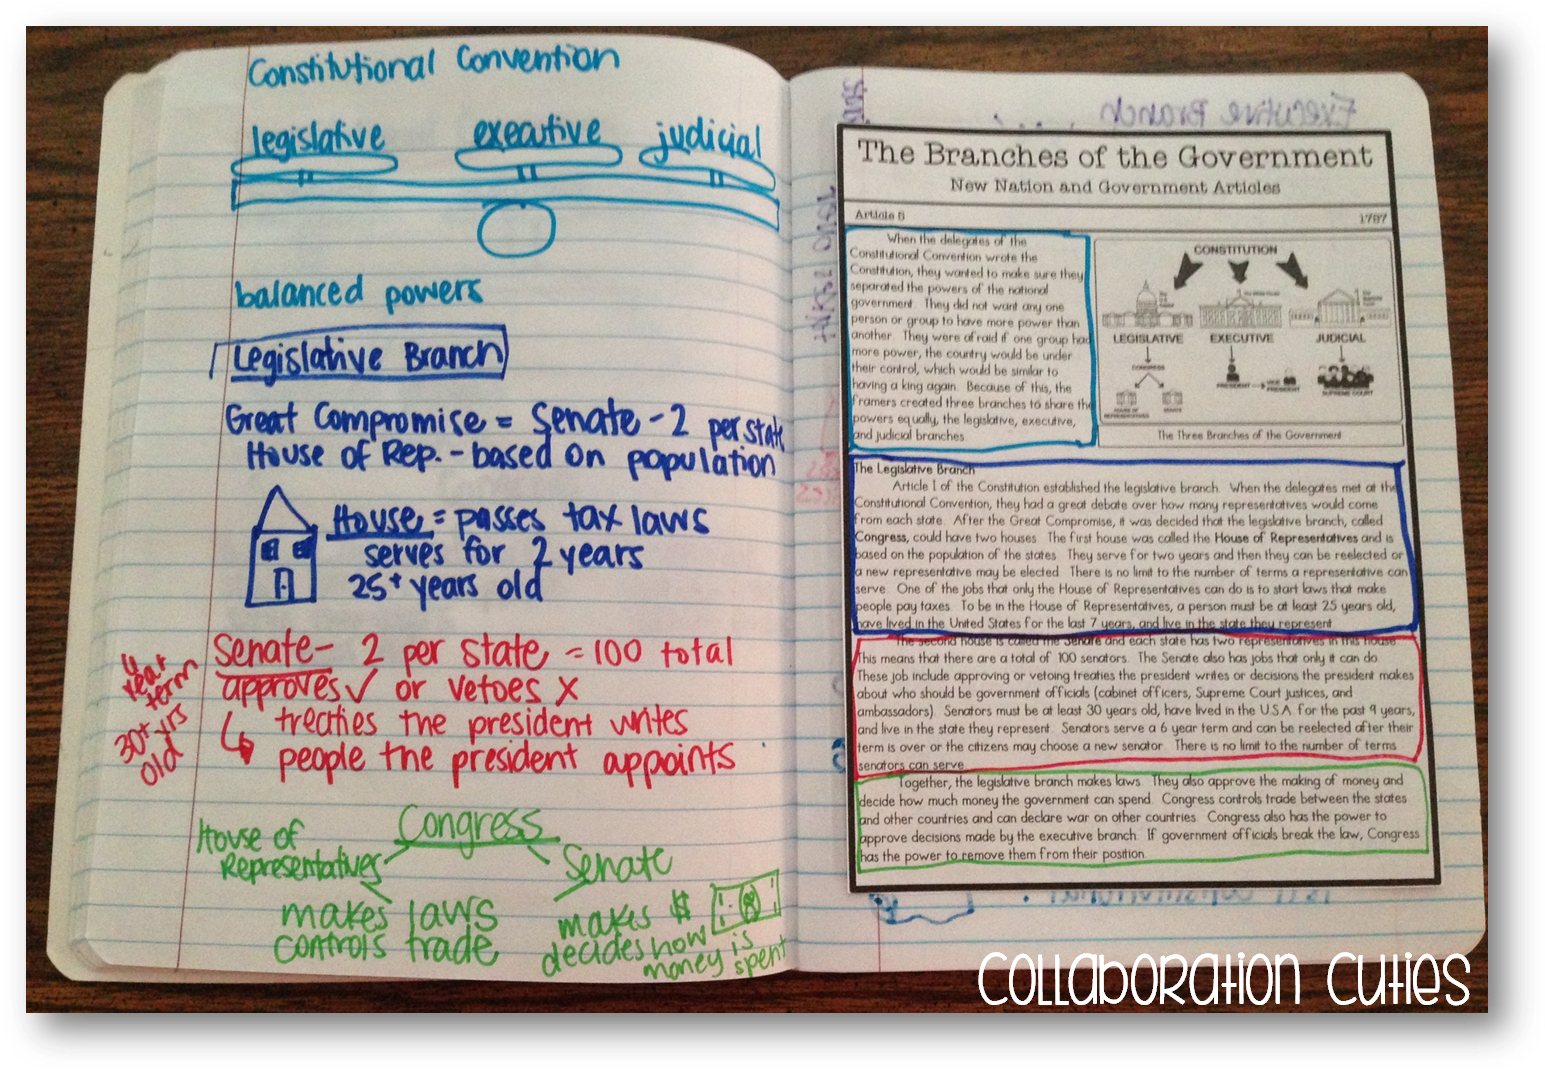 Constitutional Convention
legislative executive judicial
balanced powers
Legislative Branch
Great Compromise = Senate - 2 per state
House of Rep. - based on population
House = passes tax laws
serves for 2 years
25+ years old
Senate - 2 per state = 100 total
approves ✓ or vetoes X
treaties the president writes
people the president appoints
year
term
30+ yrs
old
Congress
House of
Representatives
Senate
makes laws
controls trade
makes $
decides how
money is
spent
Executive Branch
The Branches of the Government
New Nation and Government Articles
Article 5 1787
When the delegates of the
Constitutional Convention wrote the
Constitution, they wanted to make sure they
separated the powers of the national
government. They did not want any one
person or group to have more power than
another. They were afraid if one group had
more power, the country would be under
their control, which would be similar to
having a king again. Because of this, the
framers created three branches to share the
powers equally, the legislative, executive,
and judicial branches.
CONSTITUTION
LEGISLATIVE EXECUTIVE JUDICIAL
CONGRESS
PRESIDENT VICE PRESIDENT
SUPREME COURT
HOUSE OF REPRESENTATIVES SENATE
The Three Branches of the Government
The Legislative Branch
Article 1 of the Constitution established the legislative branch. When the delegates met at the
Constitutional Convention, they had a great debate over how many representatives would come
from each state. After the Great Compromise, it was decided that the legislative branch, called
Congress, could have two houses. The first house was called the House of Representatives and is
based on the population of the states. They serve for two years and then they can be reelected or
a new representative may be elected. There is no limit to the number of terms a representative can
serve. One of the jobs that only the House of Representatives can do is to start laws that make
people pay taxes. To be in the House of Representatives, a person must be at least 25 years old,
have lived in the United States for the last 7 years, and live in the state they represent.
The second house is called the Senate and each state has two representatives in this house.
This means that there are a total of 100 senators. The Senate also has jobs that only it can do.
These job include approving or vetoing treaties the president writes or decisions the president makes
about who should be government officials (cabinet officers, Supreme Court justices, and
ambassadors). Senators must be at least 30 years old, have lived in the U.S.A. for the past 9 years,
and live in the state they represent. Senators serve a 6 year term and can be reelected after their
term is over or the citizens may choose a new senator. There is no limit to the number of terms
senators can serve.
Together, the legislative branch makes laws. They also approve the making of money and
decide how much money the government can spend. Congress controls trade between the states
and other countries and can declare war on other countries. Congress also has the power to
approve decisions made by the executive branch. If government officials break the law, Congress
has the power to remove them from their position.
Collaboration Cuties